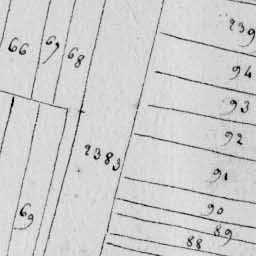 239
66 67 68
94
93
92
2383
91
90
69
89
88